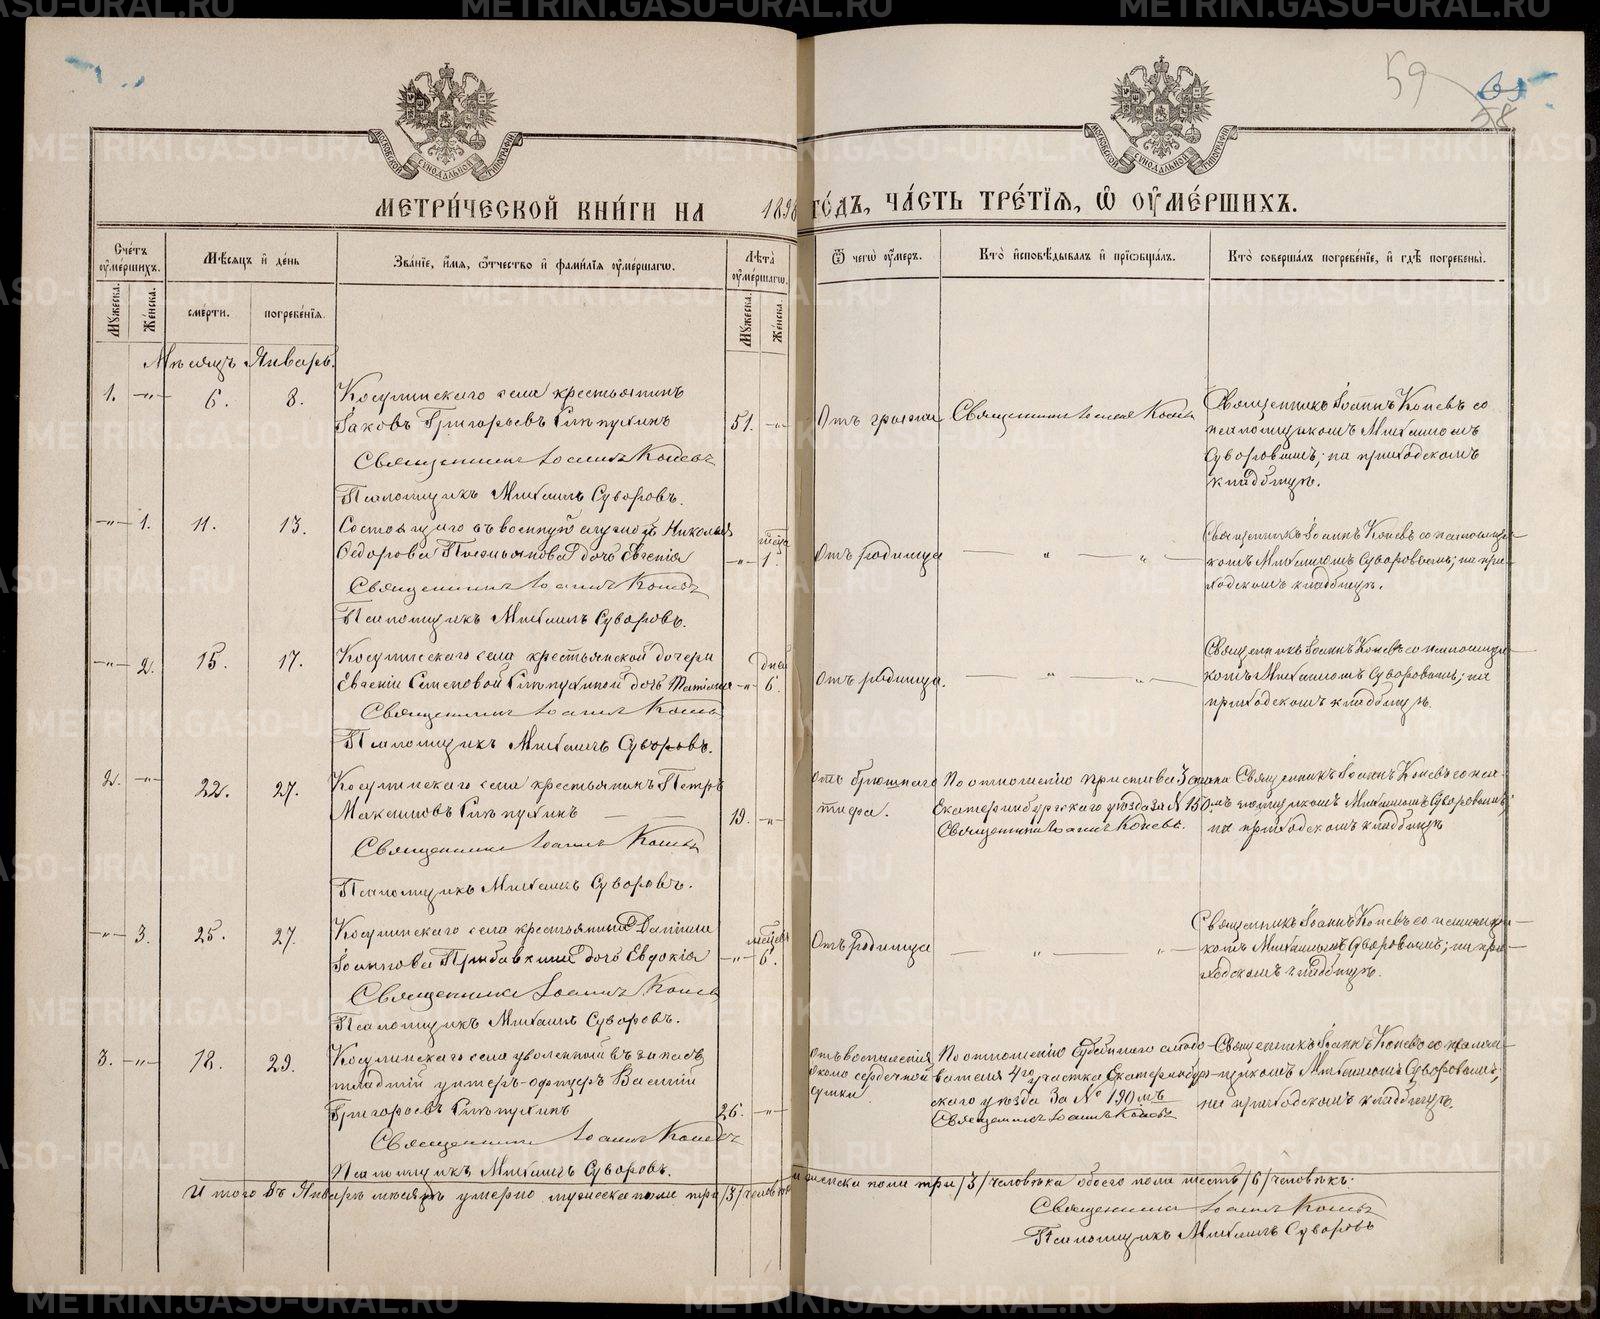 МЕТРИЧЕСКОЙ КНИГИ НА 189
ГОДЪ, ЧАСТЬ ТРЕТІЯ, Ѡ ОУМЕРШИХЪ.
МОСКОВСКОЙ СѴНОДАЛЬНОЙ ТИПОГРАФІИ
МОСКОВСКОЙ СѴНОДАЛЬНОЙ ТИПОГРАФІИ
59
58
Счетъ оумершихъ.
Мѣсяцъ и день
Званіе, имя, отчество и фамилія оумершагѡ.
Лѣта оумершагѡ.
Ѿ чегѡ оумеръ.
Кто исповѣдывалъ и пріобщалъ.
Кто совершалъ погребеніе, и гдѣ погребены.
Мужеска.
Женска.
смерти.
погребенія.
Мужеска.
Женска.
Мѣсяцъ Январь.
1. -"- 6. 8. Косулинскаго села крестьянинъ
Іаковъ Григорьевъ 51. -"-
Отъ грыжи
Священникъ Іоаннъ Коневъ
Священникъ Іоаннъ Коневъ со
псаломщикомъ Михаиломъ
Суворовымъ; на приходскомъ
кладбищѣ.
Священникъ Іоаннъ Коневъ
Псаломщикъ Михаилъ Суворовъ.
-"- 1. 11. 13. Состоящаго въ военной службѣ Николая
Ѳедорова дочь Евгенія -"- 1.
Отъ родимца
Священникъ Іоаннъ Коневъ со псаломщи-
комъ Михаиломъ Суворовымъ; на при-
ходскомъ кладбищѣ.
Священникъ Іоаннъ Коневъ
Псаломщикъ Михаилъ Суворовъ.
-"- 2. 15. 17. Косулинскаго села крестьянской дочери
Евгеніи Семеновой дочь Татіана -"- дней 6.
Отъ родимца.
Священникъ Іоаннъ Коневъ со псаломщи-
комъ Михаиломъ Суворовымъ; на
приходскомъ кладбищѣ.
Священникъ Іоаннъ Коневъ
Псаломщикъ Михаилъ Суворовъ.
2. -"- 22. 27. Косулинскаго села крестьянинъ Петръ
Максимовъ 19. -"-
Отъ брюшного
тифа.
По отношенію пристава 3 стана
Екатеринбургскаго уѣзда за №
Священникъ Іоаннъ Коневъ.
Священникъ Іоаннъ Коневъ со пса-
ломщикомъ Михаиломъ Суворовымъ;
на приходскомъ кладбищѣ
Священникъ Іоаннъ Коневъ
Псаломщикъ Михаилъ Суворовъ.
-"- 3. 25. 27. Косулинскаго села крестьянина Даніила
Іоаннова дочь Евдокія -"- 6.
Отъ родимца
Священникъ Іоаннъ Коневъ со псаломщи-
комъ Михаиломъ Суворовымъ; на при-
ходскомъ кладбищѣ.
Священникъ Іоаннъ Коневъ
Псаломщикъ Михаилъ Суворовъ.
3. -"- 18. 29. Косулинскаго села уволенный въ запасъ
младшій унтеръ-офицеръ Василій
Григорьевъ 26. -"-
Отъ воспаленія
около сердечной
сумки.
По отношенію Судебнаго слѣдо-
вателя 4го участка Екатеринбург-
скаго уѣзда за № 190мъ
Священникъ Іоаннъ Коневъ
Священникъ Іоаннъ Коневъ со псалом-
щикомъ Михаиломъ Суворовымъ;
на приходскомъ кладбищѣ.
Священникъ Іоаннъ Коневъ
Псаломщикъ Михаилъ Суворовъ.
Итого въ Январѣ мѣсяцѣ умерло мужеска пола три /3/ человѣка
и женска пола три /3/ человѣка обоего пола шесть /6/ человѣкъ.
Священникъ Іоаннъ Коневъ
Псаломщикъ Михаилъ Суворовъ
METRIKI.GASO-URAL.RU